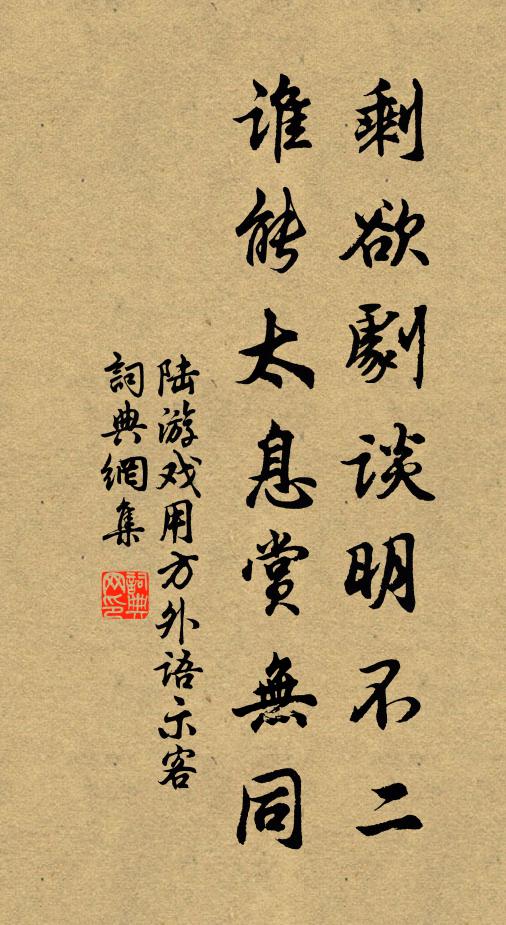 剩欲劇谈明不二
谁能太息赏無同
陆游戏用方外语示客
詞典網集
詞典网印